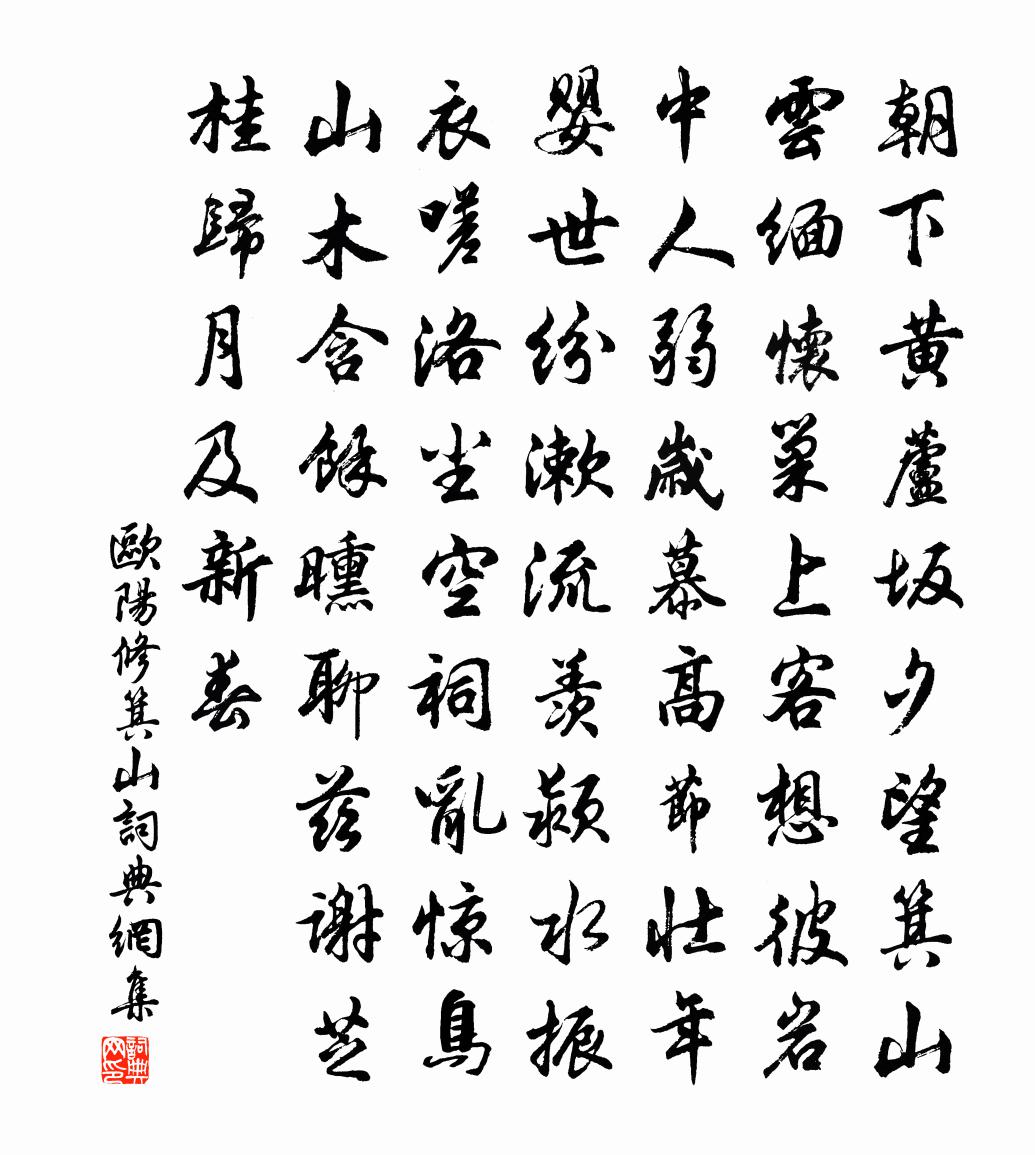 朝下黄蘆坂夕望箕山
雲緬懷巢上客想彼岩
中人弱歲慕高節壯年
嬰世紛漱流羨潁水振
衣嗟洛尘空祠亂惊鳥
山木含餘曛聊兹謝芝
桂歸月及新春
歐陽修箕山詞典網集
詞典网印